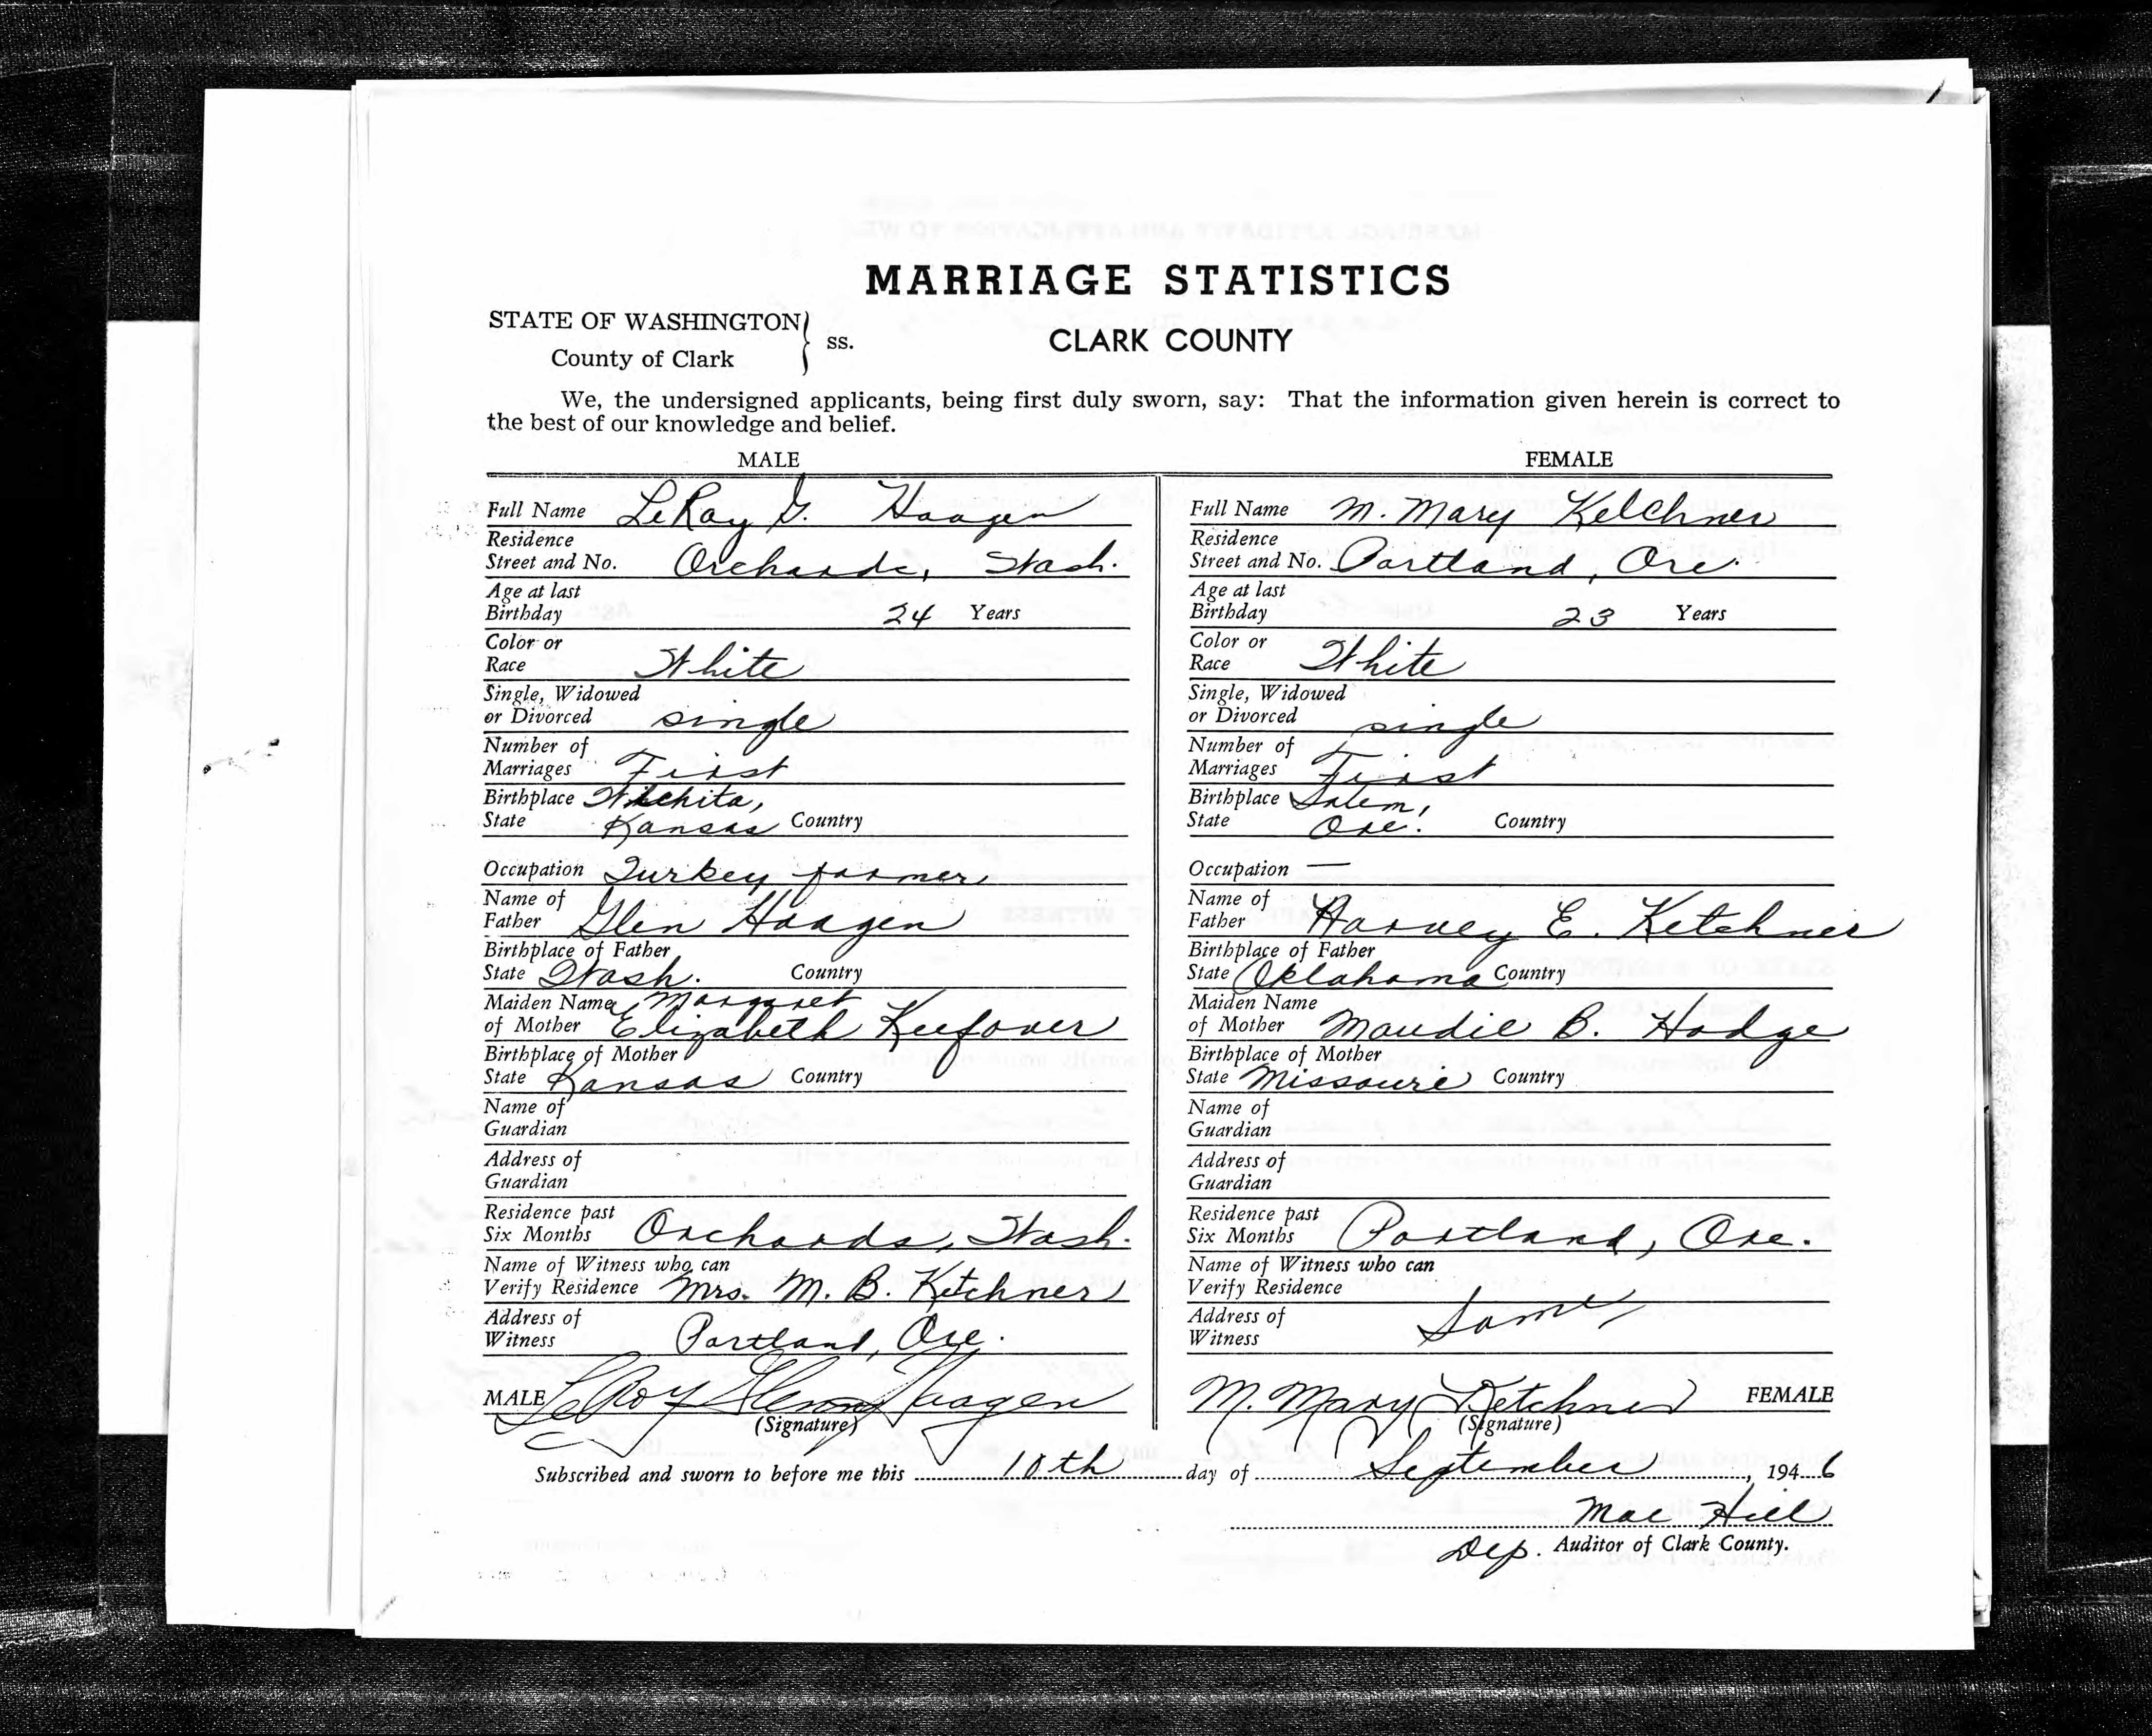 MARRIAGE STATISTICS
STATE OF WASHINGTON
County of Clark
ss.
CLARK COUNTY
We, the undersigned applicants, being first duly sworn, say: That the information given herein is correct to
the best of our knowledge and belief.
MALE
Full Name LeRoy G. Haagen
Residence
Street and No. Orchards, Wash.
Age at last
Birthday 24 Years
Color or
Race White
Single, Widowed
or Divorced single
Number of
Marriages First
Birthplace Wichita,
State Kansas Country
Occupation Turkey farmer
Name of
Father Glen Haagen
Birthplace of Father
State Wash. Country
Maiden Name Margaret
of Mother Elizabeth Keefover
Birthplace of Mother
State Kansas Country
Name of
Guardian
Address of
Guardian
Residence past
Six Months Orchards, Wash.
Name of Witness who can
Verify Residence Mrs. M. B. Ketchner
Address of
Witness Portland, Ore.
MALE LeRoy Glenn Haagen
(Signature)
FEMALE
Full Name M. Mary Ketchner
Residence
Street and No. Portland, Ore.
Age at last
Birthday 23 Years
Color or
Race White
Single, Widowed
or Divorced single
Number of
Marriages First
Birthplace Salem,
State Ore. Country
Occupation —
Name of
Father Harvey E. Ketchner
Birthplace of Father
State Oklahoma Country
Maiden Name
of Mother Maudie B. Hodge
Birthplace of Mother
State Missouri Country
Name of
Guardian
Address of
Guardian
Residence past
Six Months Portland, Ore.
Name of Witness who can
Verify Residence
Address of
Witness Same
M. Mary Ketchner FEMALE
(Signature)
Subscribed and sworn to before me this 10th day of September, 1946
Mae Hill
Dep. Auditor of Clark County.